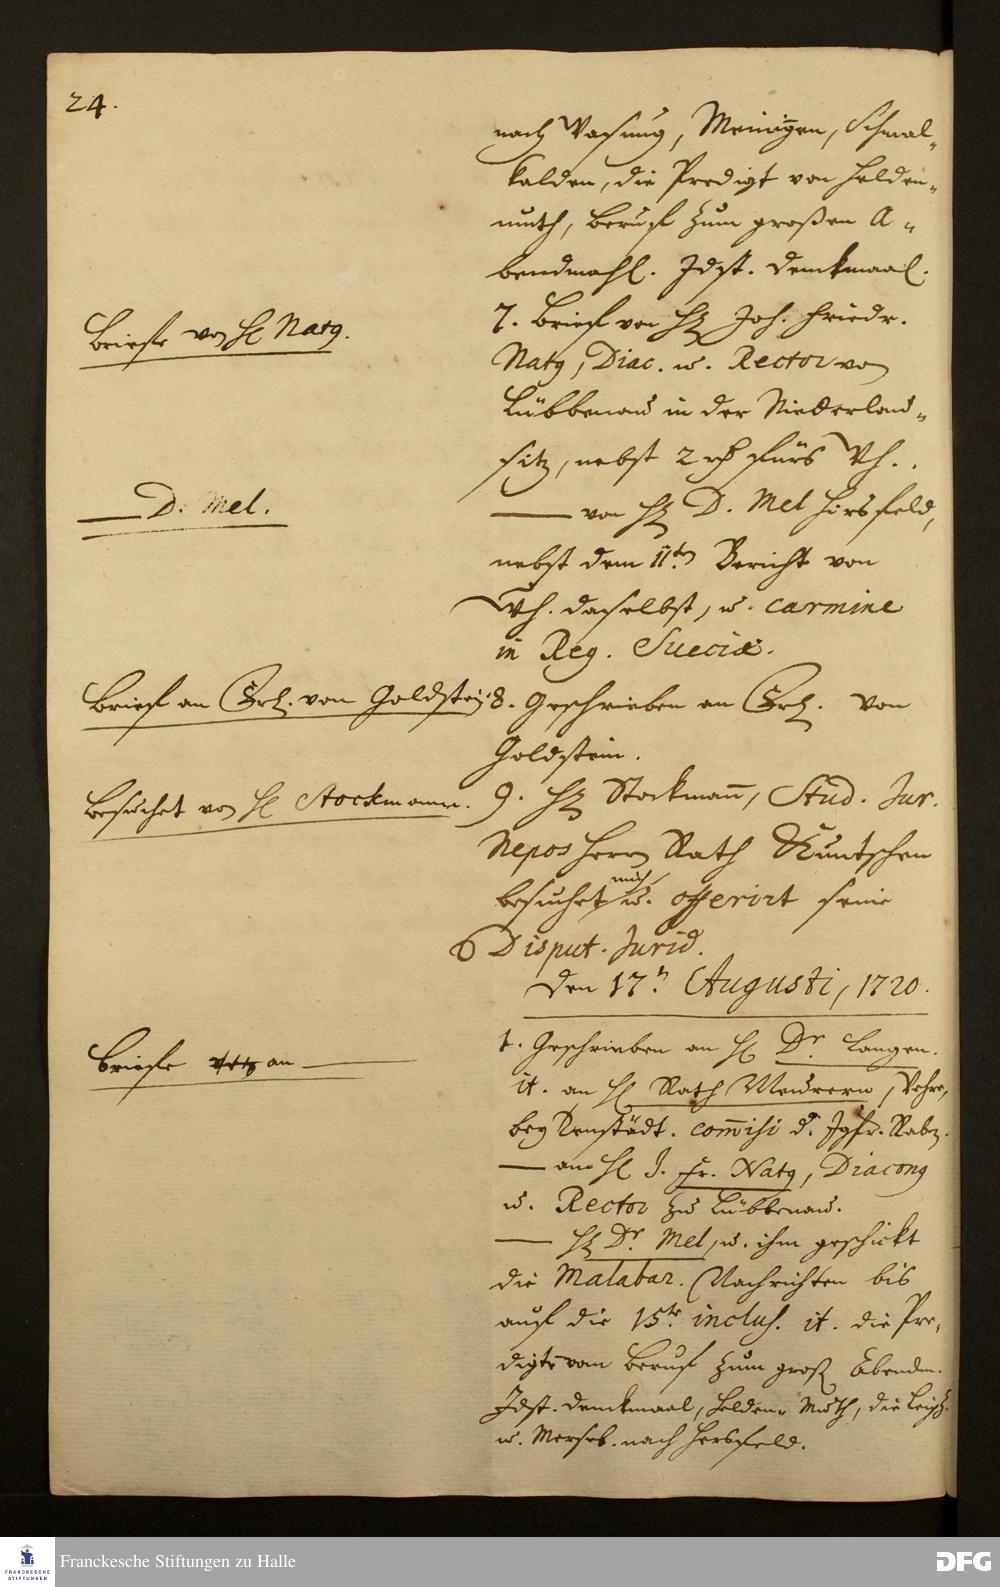 24.
nach Vasung, Meiningen, Schmal-
kalden, die Predigt von Helden-
muth, Beruf zum großen A-
bendmahl. Idst. Denkmaal.
Briefe von H Natg.
7. Brief von H Joh. Friedr.
Natg, Diac. u. Rector von
Lübbenau in der Niederlau-
sitz, nebst 2 rh fürs Wh.
— D. Mel.
— von H D. Mel Hirsfeld,
nebst dem 11ten Bericht von
Wh. daselbst, u. carmine
in Reg. Sueciæ.
Brief an Grh. von Goldstein
8. Geschrieben an Grh. von
Goldstein.
Besuchet von H Stockmann.
9. H Stockmann, Stud. Jur.
Nepos Herrn Rath Kuntschen
besuchet mich u. offerirt seine
Disput. Jurid.
den 17n Augusti, 1720.
Briefe an —
1. Geschrieben an H Dr Langen.
it. an H Rath Meurern,
bey Renstädt. com̄isi d. Jgfr. Rab.
— an H J. Fr. Natg, Diacong
u. Rector zu Lübbenau.
— H Dr. Mel, u. ihm geschickt
die Malabar. Nachrichten bis
auf die 15te inclus. it. die Pre-
digt vom Beruf zum groß Abendm.
Idst. Denkmaal, Helden-Muth, die Leipz.
u. Merseb. nach Hersfeld.
FRANCKESCHE
STIFTUNGEN
Franckesche Stiftungen zu Halle
DFG